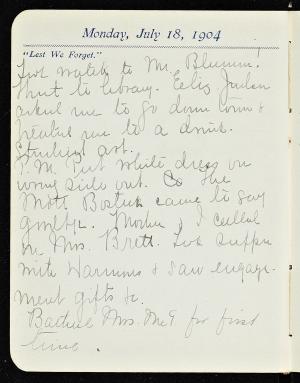 Monday, July 18, 1904
"Lest We Forget."
Took watch to Mr. Blumm!
Went to library. Elis Julien
asked me to go down town &
treated me to a drink.
Studied art.
P.M. Put white dress on
wrong side out. The
Mott Bostick came to say
goodbye. Mother & I called
on Mrs. Brett. Took supper
with Warrens & saw engage-
ment gifts &c.
Mrs. McG for first
time